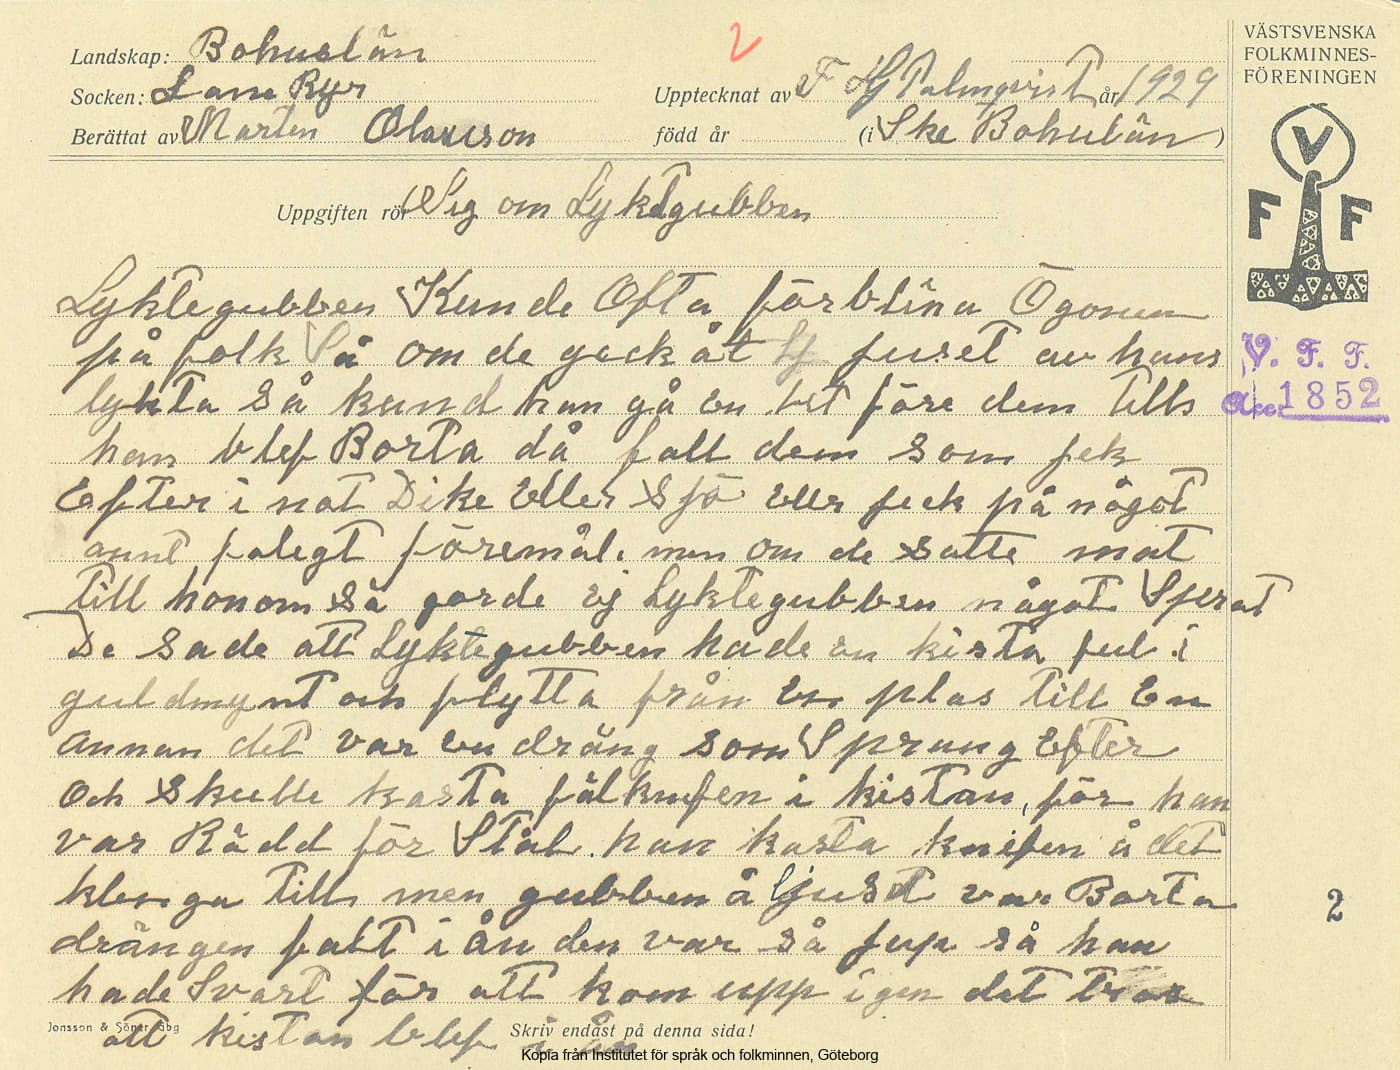 2
Landskap: Bohuslän
Socken: Lane Ryr
Upptecknat av F Hj Palmqvist år 1929
Berättat av Marten Olausson
född år (i Ske Bohuslän )
Uppgiften rör Sig om Lyktgubben
VÄSTSVENSKA
FOLKMINNES-
FÖRENINGEN
V
F F
V. F. F.
Acc. 1852
Lyktegubben Kunde Ofta förblina Ögonen
på folk Så om de geck åt juset av hans
lykta Så kund han gå en bit före dem tills
han blef Borta då fall dem som jek
Efter i not Dike Eller Sjö Eller jeck på något
annt falegt föremål. men om de satte mot
till honom Så jorde Ej Lyktegubben något Sperat
De Sade att Lyktegubben hade en kista ful i
guldmynt och flytta från En plas till En
annan det var en dräng som Sprang Efter
och Skulle kasta fälknifen i kistan, för han
var Rädd för Stål. han kasta knifen å det
klenga till men gubben å ljuset var Borta
drängen fatt i ån den var så jup så han
hade Svart för att kom upp igen det tros
att kistan blef i ån
2
Jonsson & Söner Gbg
Skriv endast på denna sida!
Kopia från Institutet för språk och folkminnen, Göteborg